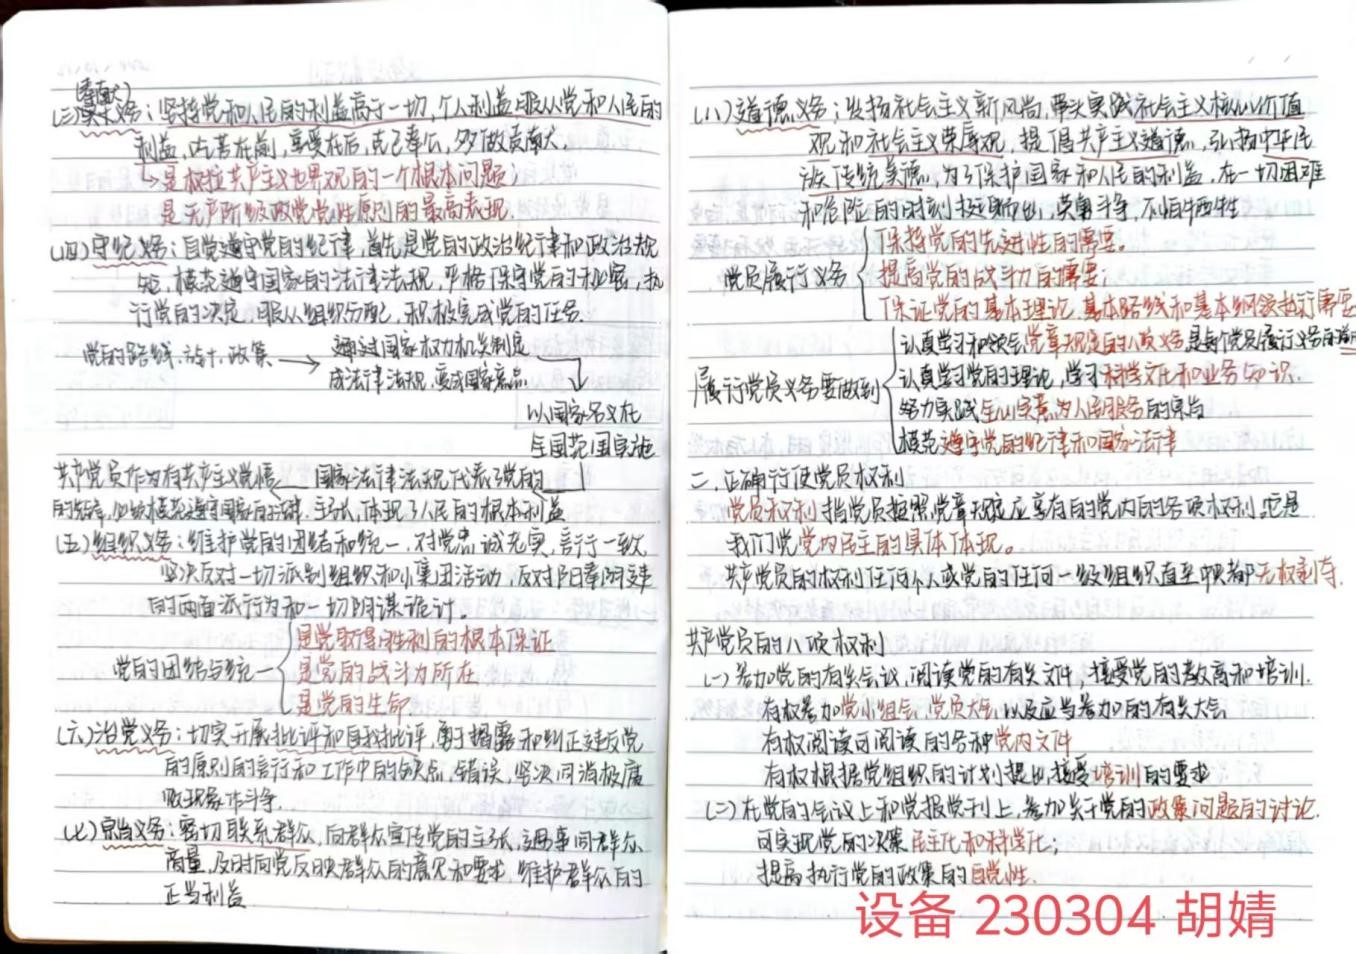 (奉献)
(三)宗旨义务：坚持党和人民的利益高于一切，个人利益服从党和人民的
利益，吃苦在前，享受在后，克己奉公，多做贡献。
→是树立共产主义世界观的一个根本问题；
是无产阶级政党党性原则的最高表现.
(四)守纪义务：自觉遵守党的纪律，首先是党的政治纪律和政治规
矩，模范遵守国家的法律法规，严格保守党的秘密，执
行党的决定，服从组织分配，积极完成党的任务.
党的路线、方针、政策 → 通过国家权力机关制定
成法律法规，变成国家意志
以国家名义在
全国范围实施
共产党员作为有共产主义觉悟 国家法律法规代表了党的
的先锋，必须模范遵守国家的法律 主张，体现了人民的根本利益
(五)组织义务：维护党的团结和统一，对党忠诚老实，言行一致，
坚决反对一切派别组织和小集团活动，反对阳奉阴违
的两面派行为和一切阴谋诡计。
是党取得胜利的根本保证
党的团结与统一 是党的战斗力所在
是党的生命
(六)治党义务：切实开展批评和自我批评，勇于揭露和纠正违反党
的原则的言行和工作中的缺点、错误，坚决同消极腐
败现象作斗争.
(七)宗旨义务：密切联系群众，向群众宣传党的主张，遇事同群众
商量，及时向党反映群众的意见和要求，维护群众的
正当利益
(八)道德义务：发扬社会主义新风尚，带头实践社会主义核心价值
观和社会主义荣辱观，提倡共产主义道德，弘扬中华民
族传统美德，为了保护国家和人民的利益，在一切困难
和危险的时刻挺身而出，英勇斗争，不怕牺牲
保持党的先进性的需要。
党员履行义务 提高党的战斗力的需要；
保证党的基本理论、基本路线和基本纲领执行需要
认真学习和领会党章规定的八项义务，是每个党员履行义务的前提
履行党员义务要做到 认真学习党的理论，学习科学文化和业务知识.
努力实践全心全意为人民服务的宗旨
模范遵守党的纪律和国家法律
二、正确行使党员权利
党员权利指党员按照党章规定应享有的党内的各项权利，它是
我们党党内民主的具体体现。
共产党员的权利任何个人或党的任何一级组织直至中央都无权剥夺.
共产党员的八项权利
(一)参加党的有关会议，阅读党的有关文件，接受党的教育和培训.
有权参加党小组会、党员大会以及应当参加的有关大会
有权阅读可阅读的各种党内文件
有权根据党组织的计划提出接受培训的要求
(二)在党的会议上和党报党刊上，参加关于党的政策问题的讨论.
可实现党的决策民主化和科学化；
提高执行党的政策的自觉性.
设备 230304 胡婧